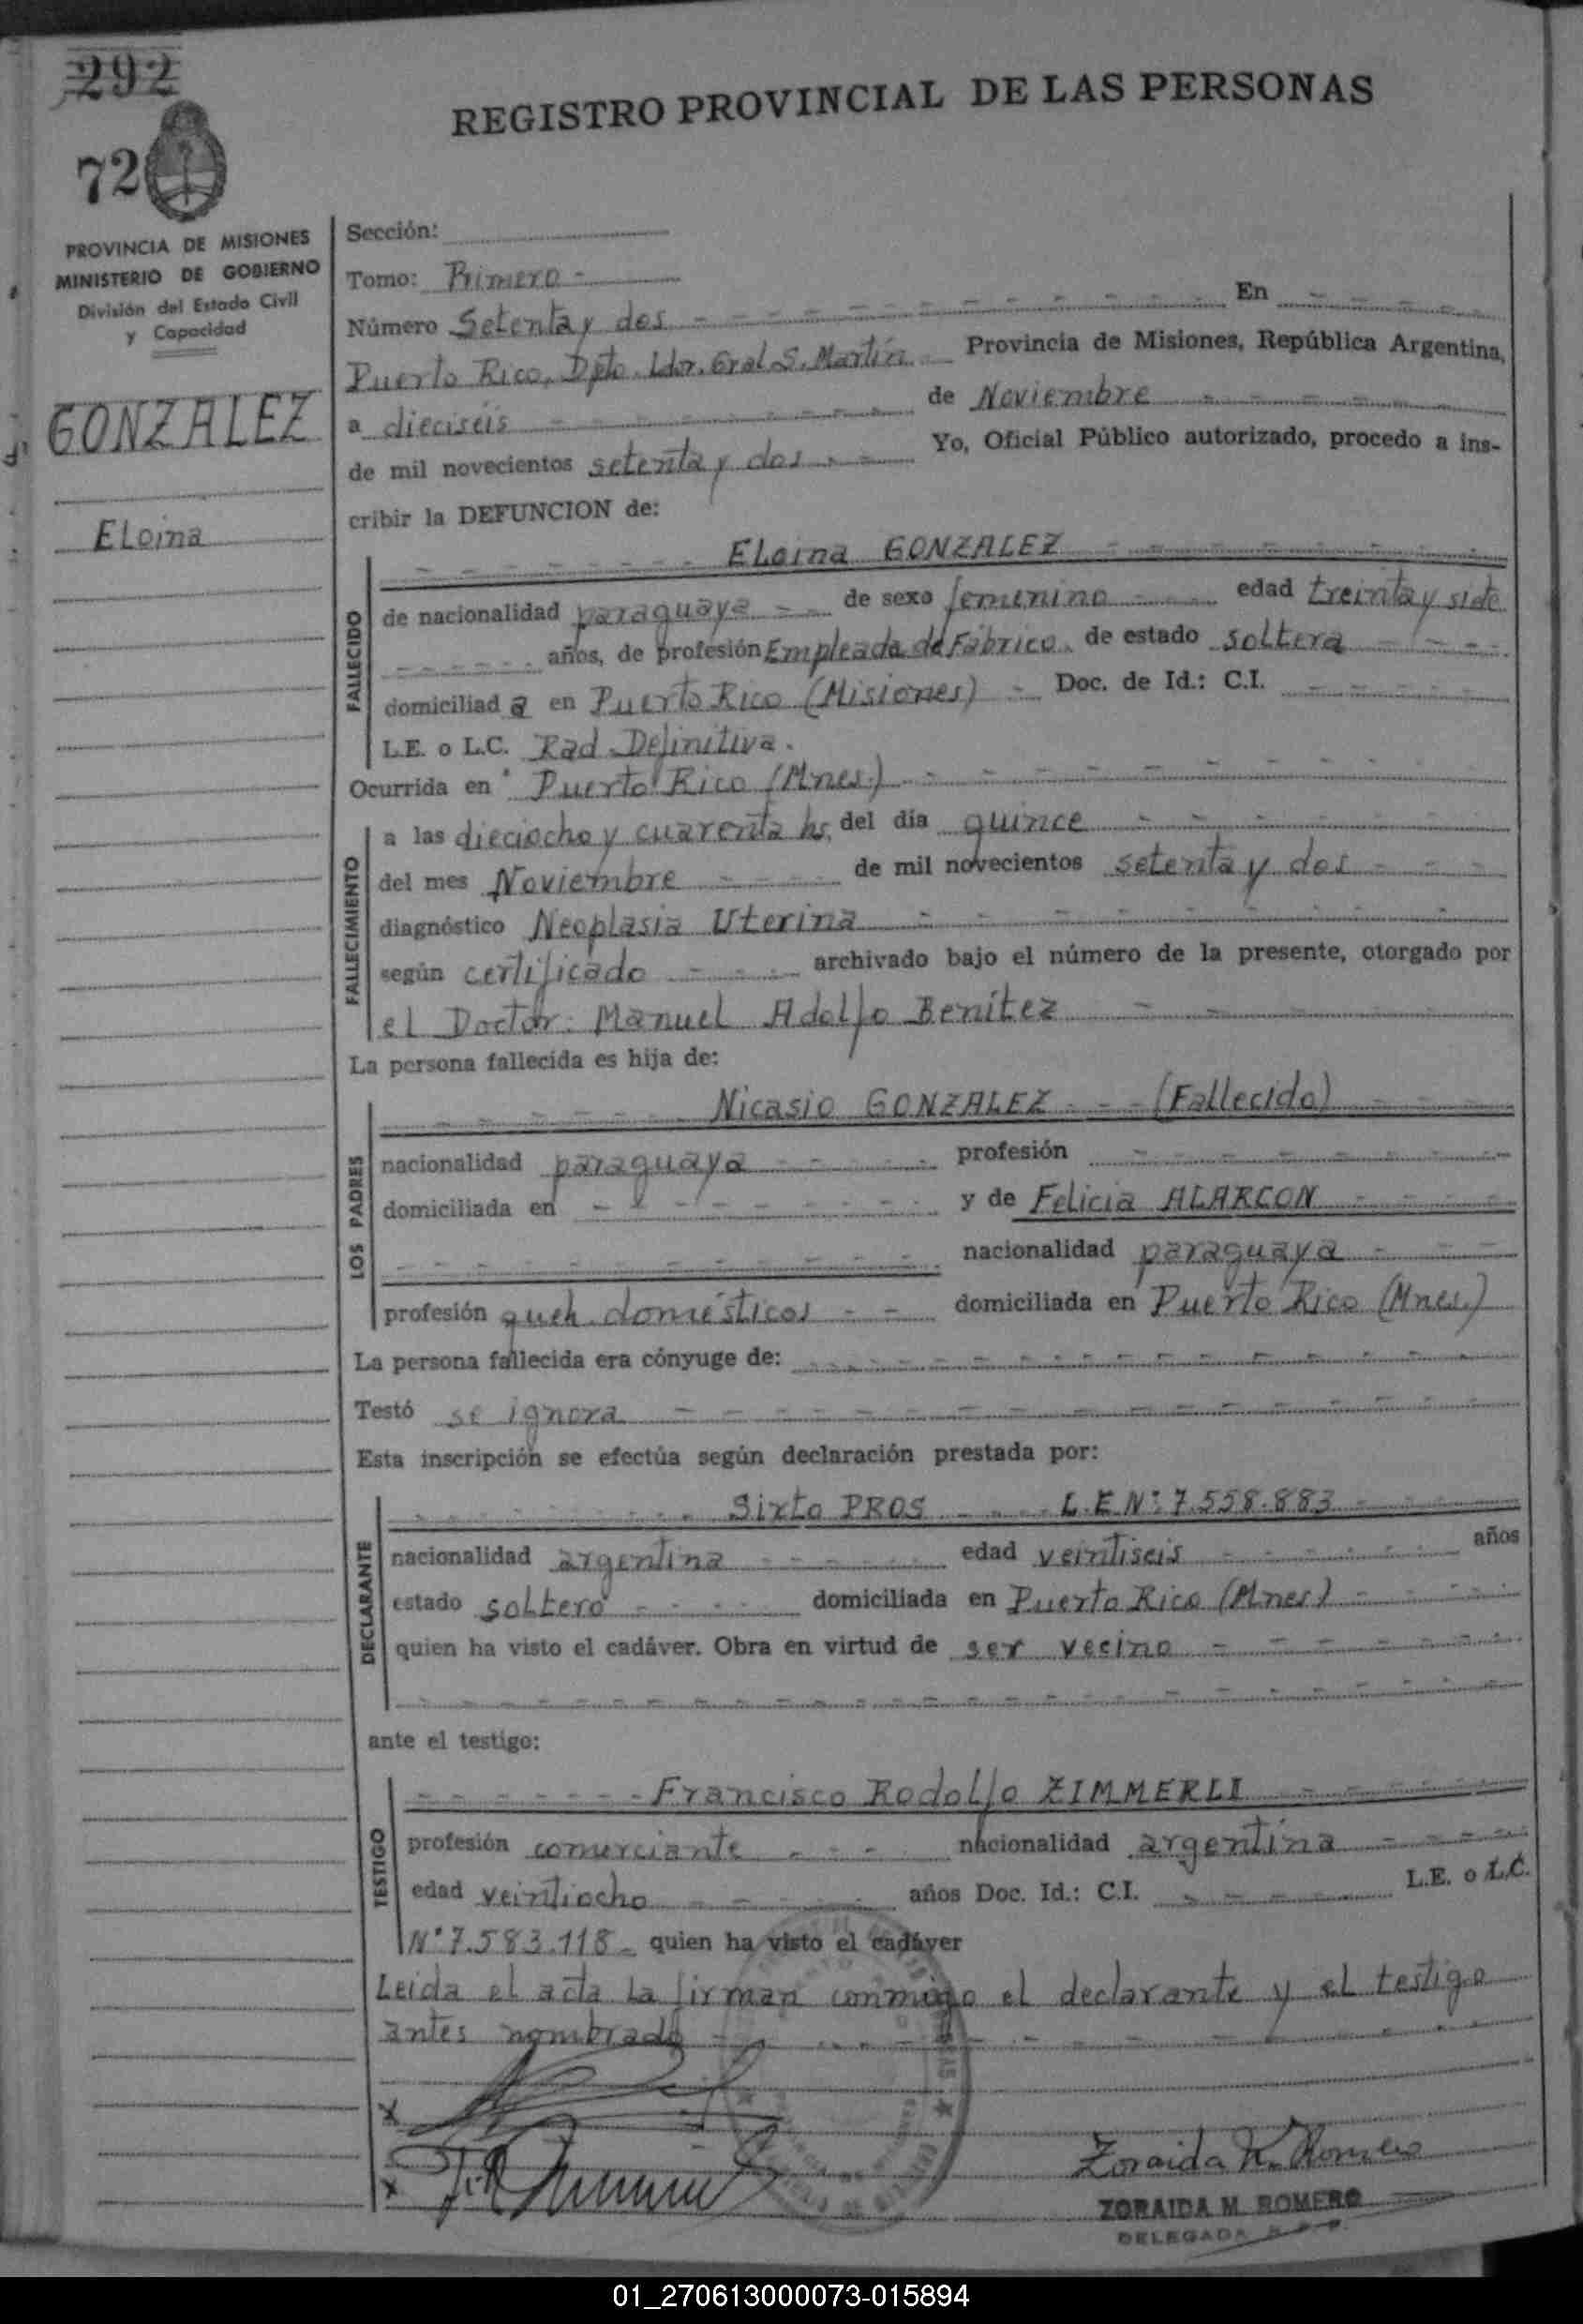 292
72
REGISTRO PROVINCIAL DE LAS PERSONAS
PROVINCIA DE MISIONES
MINISTERIO DE GOBIERNO
División del Estado Civil
y Capacidad
GONZALEZ
ELoina
Sección:
Tomo: Primero -
Número Setenta y dos - - - - - - - - - - En - - - -
Puerto Rico, Dpto. Ldor. Gral S. Martín Provincia de Misiones, República Argentina,
a dieciséis - - - - - - - - de Noviembre - - - - - -
de mil novecientos setenta y dos - - Yo, Oficial Público autorizado, procedo a ins-
cribir la DEFUNCION de:
FALLECIDO
- - - - - - - ELoina GONZALEZ - - - - - - - -
de nacionalidad paraguaya - - de sexo femenino - - - edad treinta y siete
- - - - - - años, de profesión Empleada de Fábrica. de estado soltera - - - -
domiciliad a en Puerto Rico (Misiones) - Doc. de Id.: C.I. - - - - -
L.E. o L.C. Rad. Definitiva.
Ocurrida en Puerto Rico (Mnes.) - - - - - - - - - - -
FALLECIMIENTO
a las dieciocho y cuarenta hs. del día quince - - - - - - -
del mes Noviembre - - - - de mil novecientos setenta y dos - - -
diagnóstico Neoplasia Uterina - - - - - - - - - -
según certificado - - - archivado bajo el número de la presente, otorgado por
el Doctor: Manuel Adolfo Benítez - - - - - -
La persona fallecida es hija de:
LOS PADRES
- - - - - - - Nicasio GONZALEZ - - - (Fallecido) - - - -
nacionalidad paraguaya - - - - profesión - - - - - - - - -
domiciliada en - - - - - - - - y de Felicia ALARCON - - - -
- - - - - - - - - - - - nacionalidad paraguaya - - - -
profesión queh. domésticos - - domiciliada en Puerto Rico (Mnes.)
La persona fallecida era cónyuge de: - - - - - - - - - - - - - - -
Testó se ignora - - - - - - - - - - - - - - - -
Esta inscripción se efectúa según declaración prestada por:
DECLARANTE
- - - - - - - Sixto PROS - - - L.E.Nº: 7.558.883 - - -
nacionalidad argentina - - - - - edad veintiseis - - - - - - años
estado soltero - - - - domiciliada en Puerto Rico (Mnes) - - - -
quien ha visto el cadáver. Obra en virtud de ser vecino - - - - - - -
- - - - - - - - - - - - - - - - - - - - - - - - - -
ante el testigo:
TESTIGO
- - - - - - - Francisco Rodolfo ZIMMERLI - - - - - -
profesión comerciante - - - nacionalidad argentina - - - - -
edad veintiocho - - - - años Doc. Id.: C.I. - - - - - L.E. o L.C.
Nº 7.583.118 - quien ha visto el cadáver
Leida el acta la firman conmigo el declarante y el testigo
antes nombrado - - - - - - - - - - - - - - - -
x
x
Zoraida M. Romero
ZORAIDA M. ROMERO
DELEGADA
01_270613000073-015894